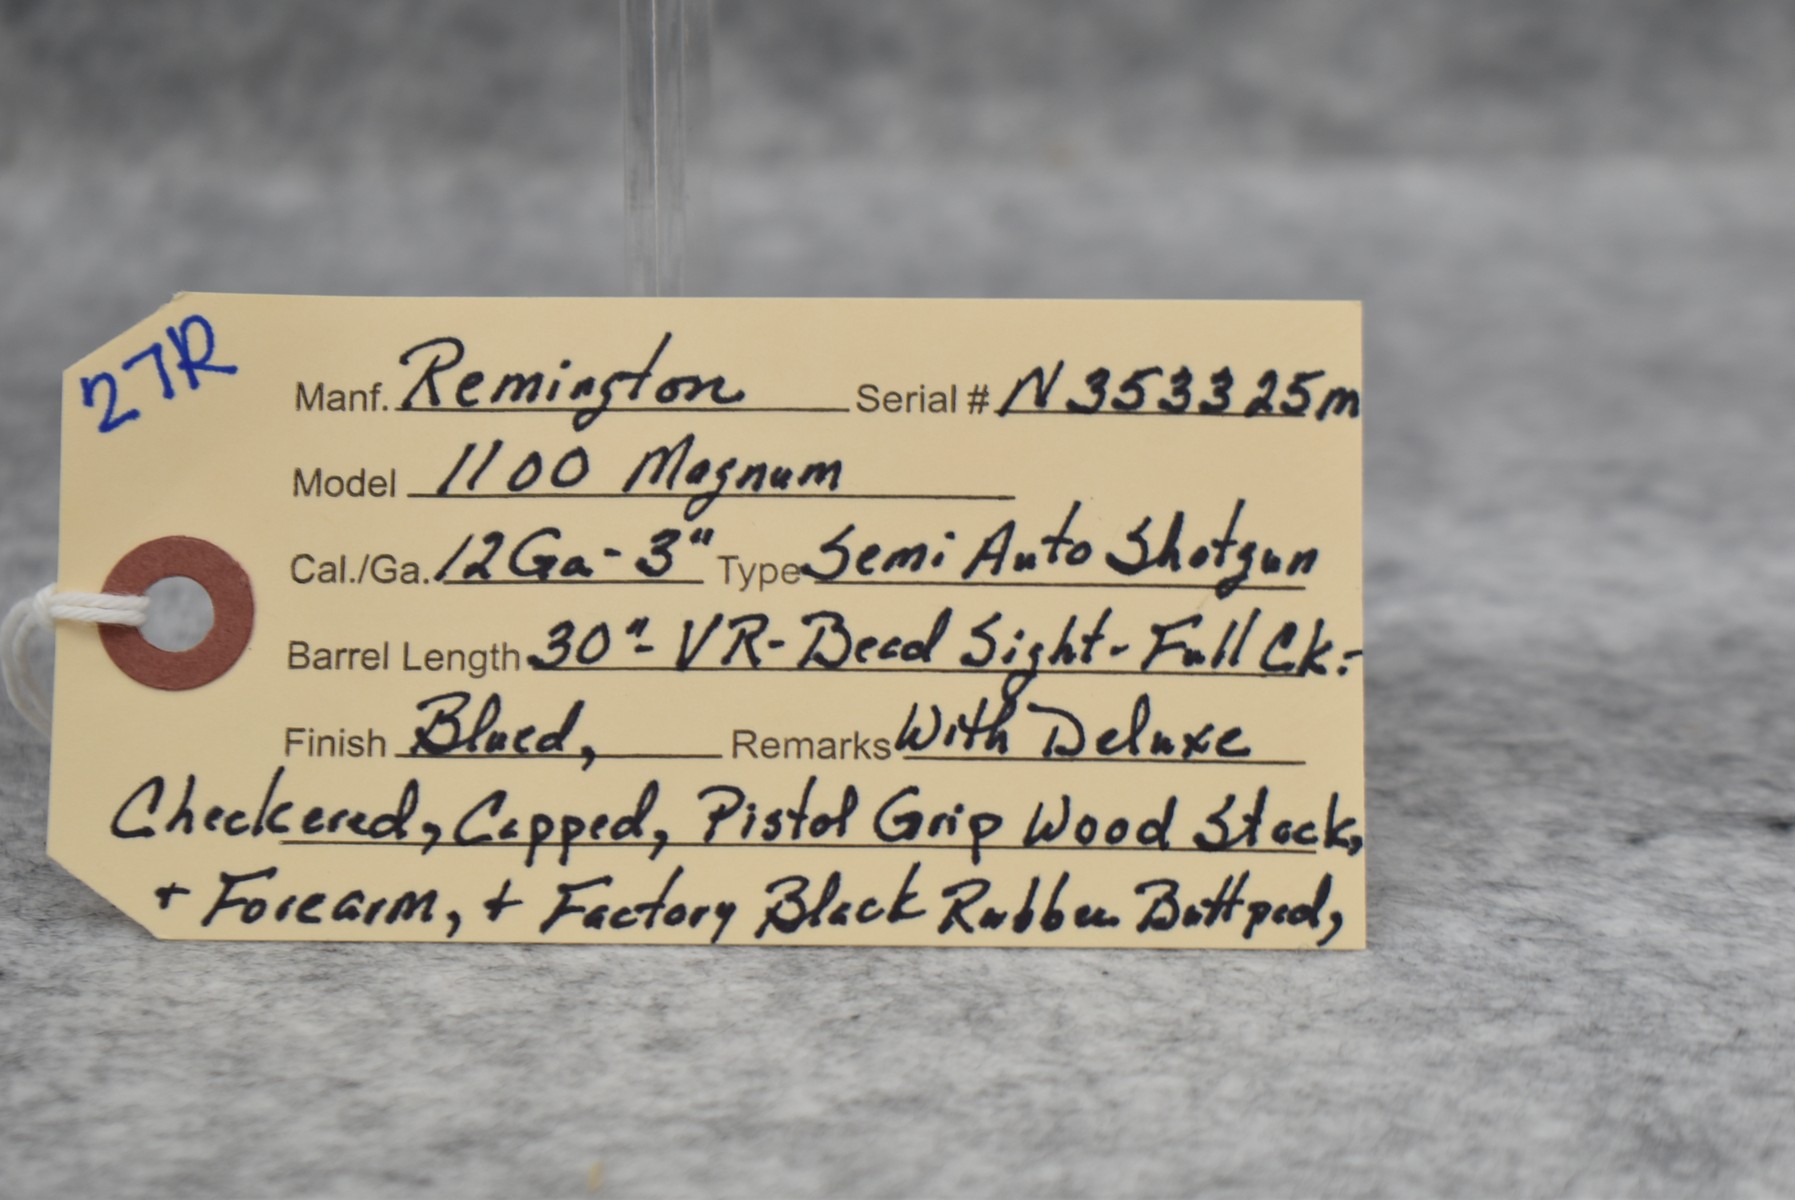 27R
Manf. Remington Serial # N353325m
Model 1100 Magnum
Cal./Ga. 12Ga-3" Type Semi Auto Shotgun
Barrel Length 30"-VR-Bead Sight-Full Ck.-
Finish Blued, Remarks With Deluxe
Checkered, Capped, Pistol Grip Wood Stock,
+ Forearm, + Factory Black Rubber Buttpad,